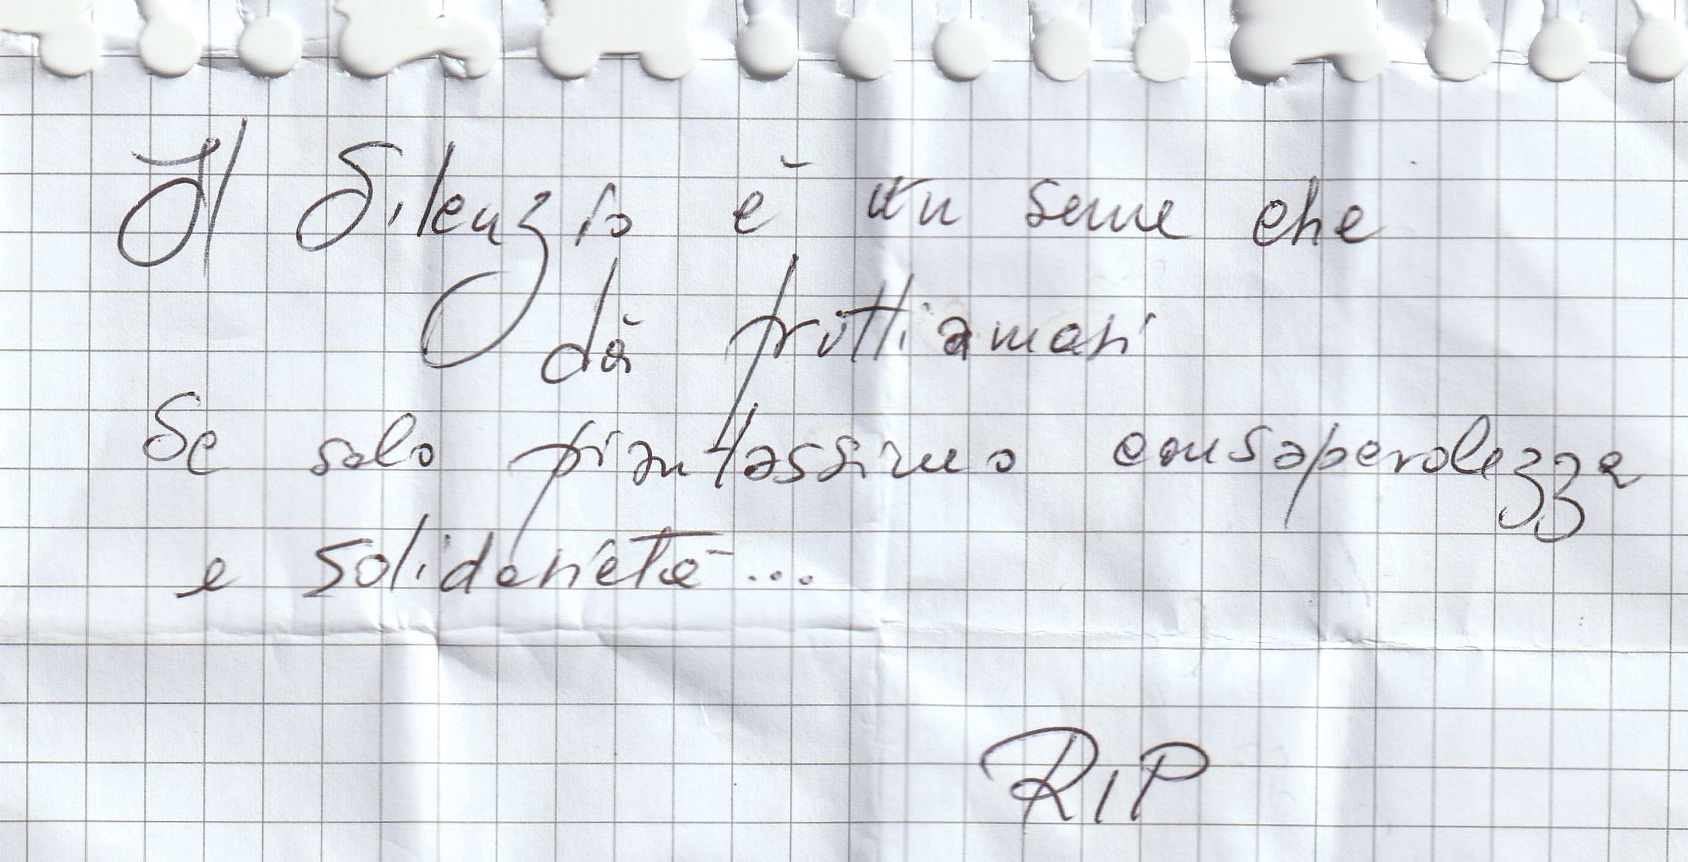 Il Silenzio è un seme che
dà frutti amari
Se solo piantassimo consapevolezza
e solidarietà...
RIP